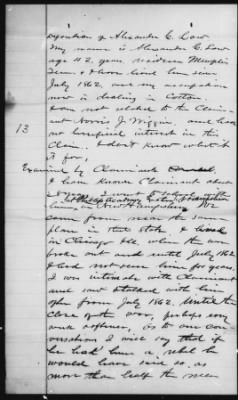 Deposition of Alexander C. Law
My name is Alexander C. Law
age 42 years, residence Memphis
Tenn. & have lived here since
July 1862, and my occupation
now is dealing in Cotton
I am not related to the Claim-
ant Norris J. Wiggin, and have
not beneficial interest in this
Claim. I don't know what it
is for,
13
Examined by Claimant
I have known Claimant about
years, I went to school with
him in New Hampshire. We
came from near the same
place in that State, & lived
in Chicago Ill, when the war
broke out and until July 1862
I had not seen him for years,
I was intimate with Claimant
and saw & talked with him
often from July 1862, Until the
close of the war, perhaps every
week & oftener, as to our con-
versations I will say that if
he had been a rebel he
would have said so, as
more than half the men